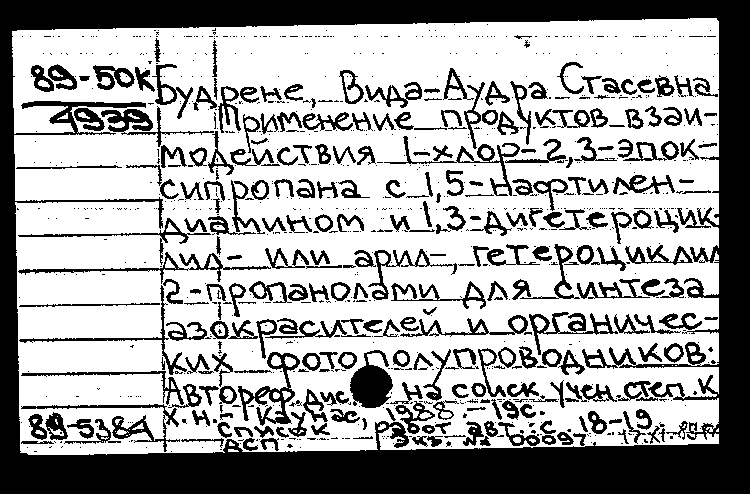 89-50к
4939
Будрене, Вида-Аудра Стасевна
Применение продуктов взаи-
модействия 1-хлор-2,3-эпок-
сипропана с 1,5-нафтилен-
диамином и 1,3-дигетероцик-
лил- или арил-, гетероциклил
2-пропанолами для синтеза
азокрасителей и органичес-
ких фотополупроводников:
Автореф. дис. на соиск. учен. степ. к.
х. н. - Каунас, 1988. - 19с.
список работ авт.: с. 18-19.
ДСП. Экз. № 00097.
89-5384